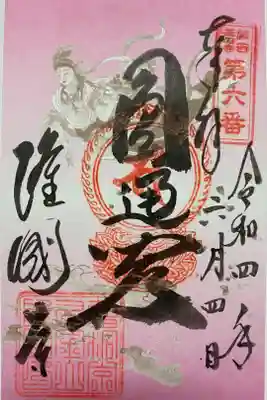 第六番
令和四年
六月四日
奉拝
圓通殿
隆國寺